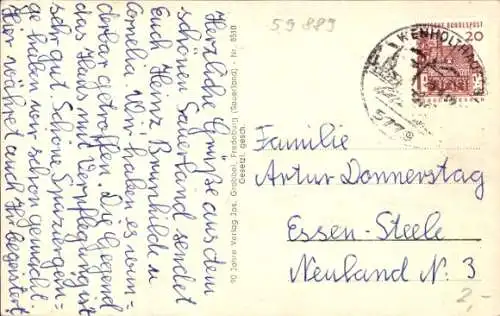 59889
Herzliche Grüße aus dem
schönen Sauerland sendet
Euch Heinz Brunhilde u
Cornelia. Wir haben es wun-
derbar getroffen. Die Gegend
das Haus mit Verpflegung ist
sehr gut. Schöne Spaziergän-
ge haben wir schon gemacht.
Hier währet auch Ihr begeistert.
90 Jahre Verlag Jos. Grobbel, Fredeburg (Sauerland) - Nr.
Gesetzl. gesch.
DEUTSCHE BUNDESPOST
20
577
Familie
Artur Donnerstag
Essen-Steele
Neuland N. 3
2,-